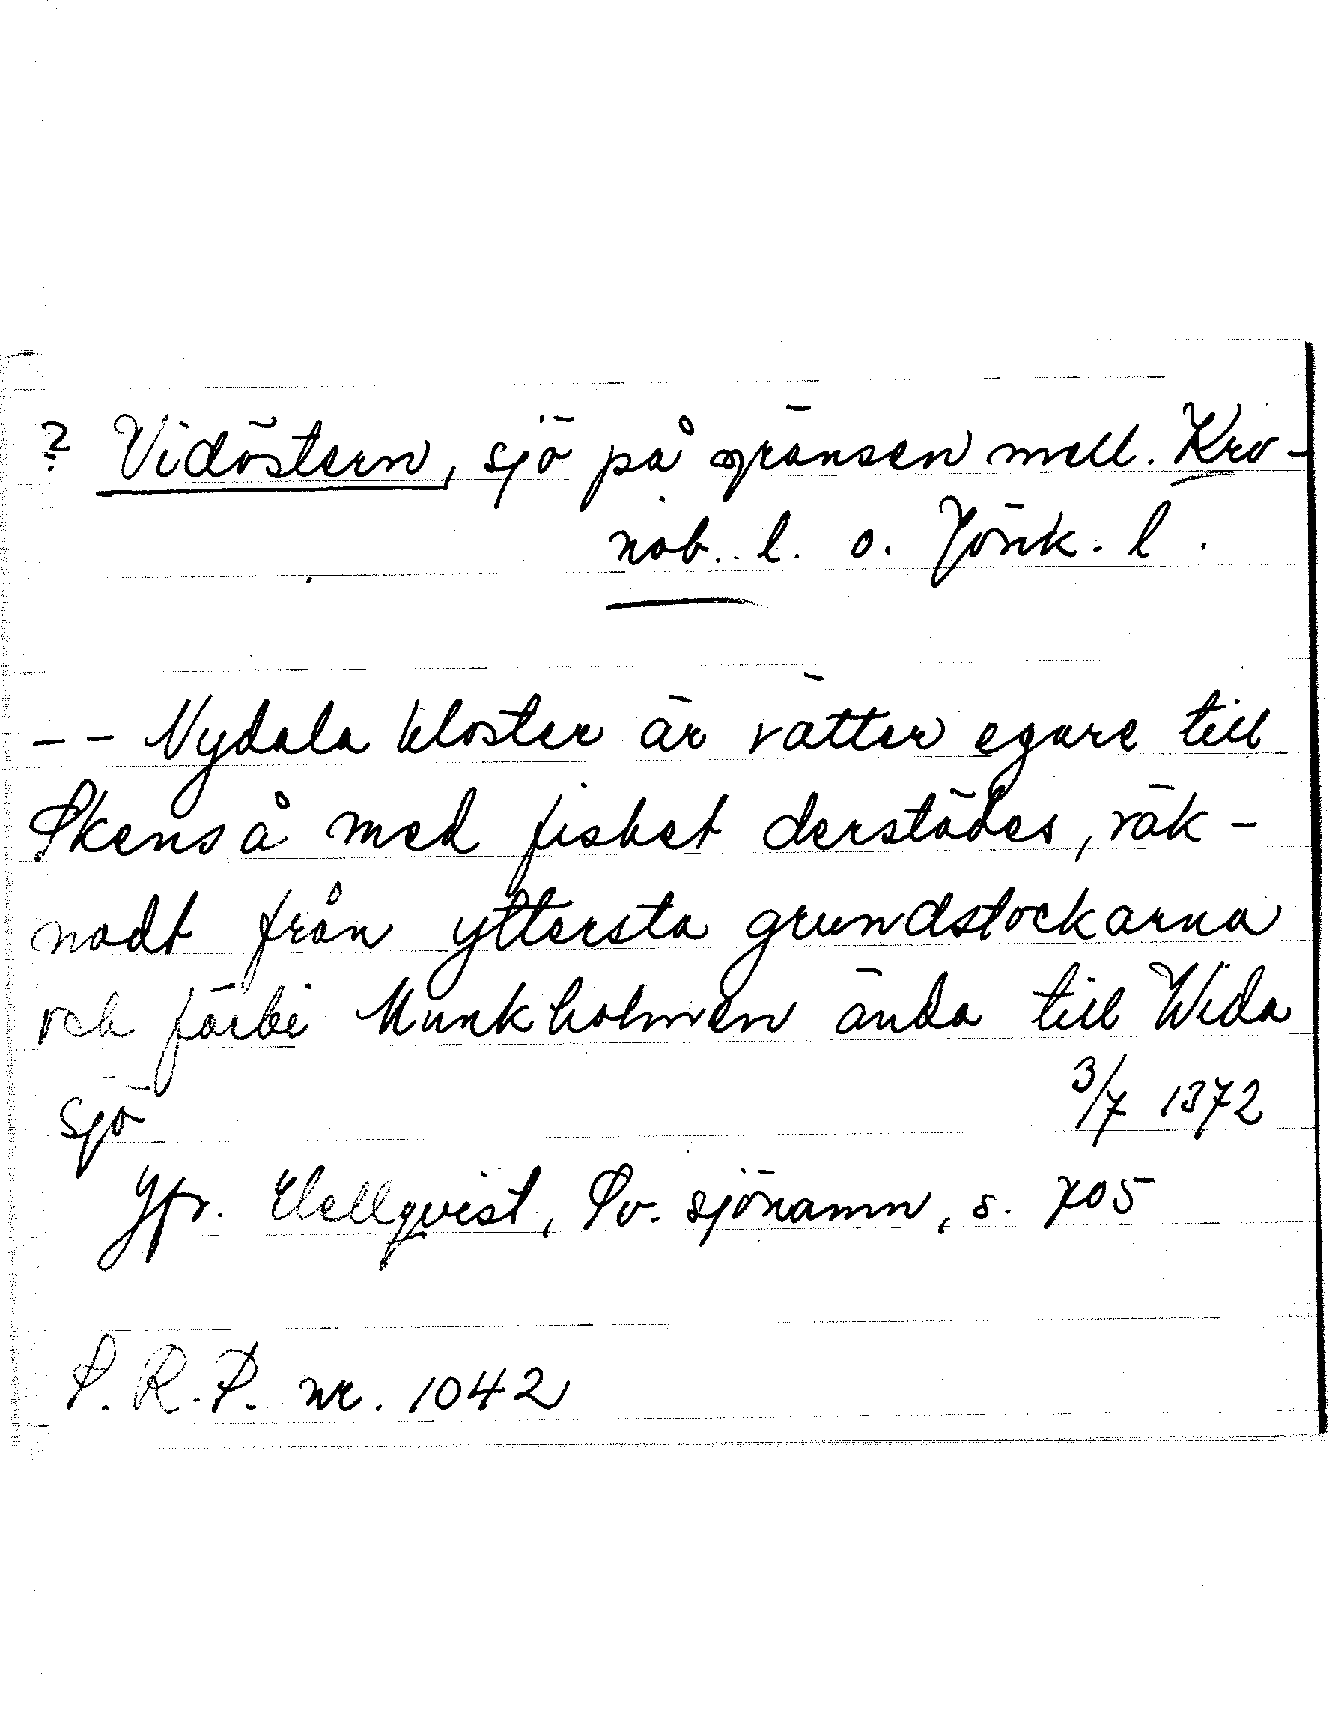 ? Vidöstern, sjö på gränsen mell. Kro-
nob. l. o. Jönk. l.
-- Nydala kloster är rätter egare till
Skenså med fisket derstädes, räk-
nadt från yttersta grundstockarna
och förbi Munkholmen ända till Wida
sjö 3/7 1372
Jfr. Hellqvist, Sv. sjönamn, s. 705
S. R. P. nr. 1042